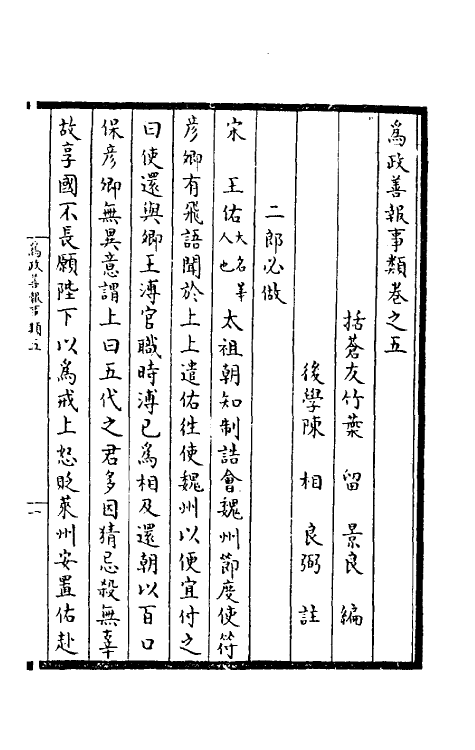 爲政善報事類卷之五
括蒼友竹葉 留 景良 編
後學陳 相 良弼 註
二郎必做
宋 王佑大名莘人也太祖朝知制誥會魏州節度使符
彦卿有飛語聞於上上遣佑徃使魏州以便宜付之
曰使還與卿王溥官職時溥已爲相及還朝以百口
保彦卿無異意謂上曰五代之君多因猜忌殺無辜
故享國不長願陛下以爲戒上怒貶萊州安置佑赴
爲政善報事類五
一